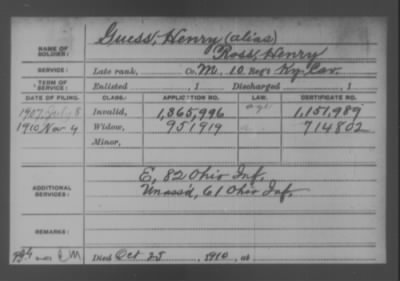 Guess, Henry (alias)
NAME OF SOLDIER: Ross, Henry
SERVICE: Late rank, Co. M, 10 Reg't Ky. Cav.
TERM OF SERVICE: Enlisted , 1 Discharged , 1
DATE OF FILING. CLASS. APPLICATION NO. LAW. CERTIFICATE NO.
1907 July 8 Invalid, 1,365,996 1,151,989
1910 Nov 4 Widow, 951919 714802
Minor,
ADDITIONAL SERVICES: E, 82 Ohio Inf.
Unass'd, 61 Ohio Inf.
REMARKS:
Died Oct 25, 1910, at